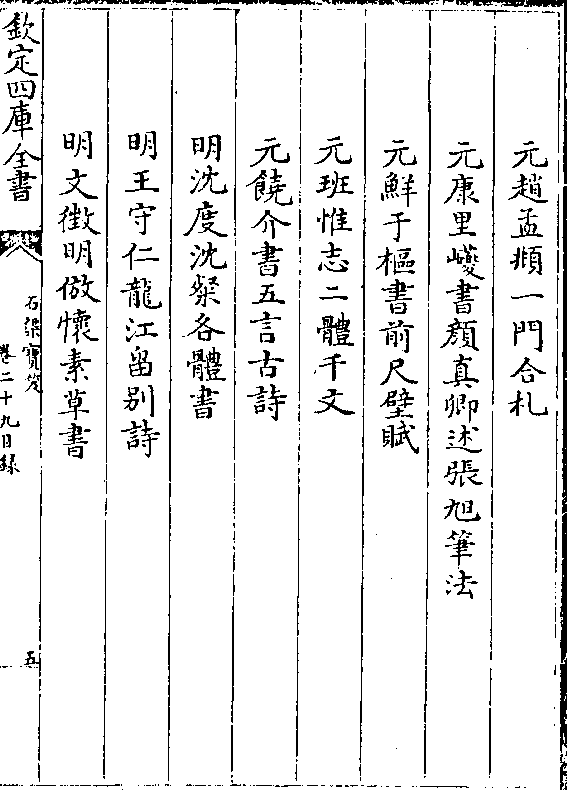 元趙孟頫一門合札
元康里巎書顏真卿述張旭筆法
元鮮于樞書前尺壁賦
元班惟志二體千文
元饒介書五言古詩
明沈度沈粲各體書
明王守仁龍江留别詩
明文徵明倣懷素草書
欽定四庫全書
石渠寶笈
卷二十九目錄
五